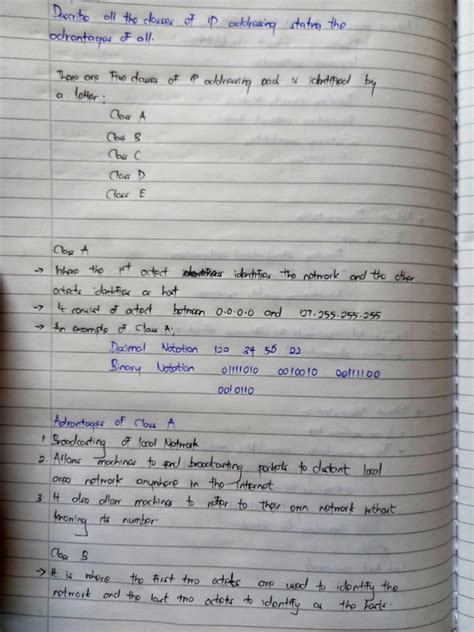 Describe all the classes of IP addressing stating the
advantages of all.
There are Five classes of IP addressing and is identified by
a letter;
Class A
Class B
Class C
Class D
Class E
Class A
→ Where the 1st octect identifies the network and the other
octets identifies as host
→ It consist of octect between 0.0.0.0 and 127.255.255.255
→ An example of Class A;
Decimal Notation 120 34 56 02
Binary Notation 01111010 0010010 00111100
0010110
Advantages of Class A
1. Broadcasting of local Network
2. Allows machines to send broadcasting packets to distant local
area network anywhere in the Internet
3. It also allow machines to refer to their own network without
knowing its number.
Class B
→ It is where the first two octets are used to identify the
network and the last two octets to identify as the hosts.